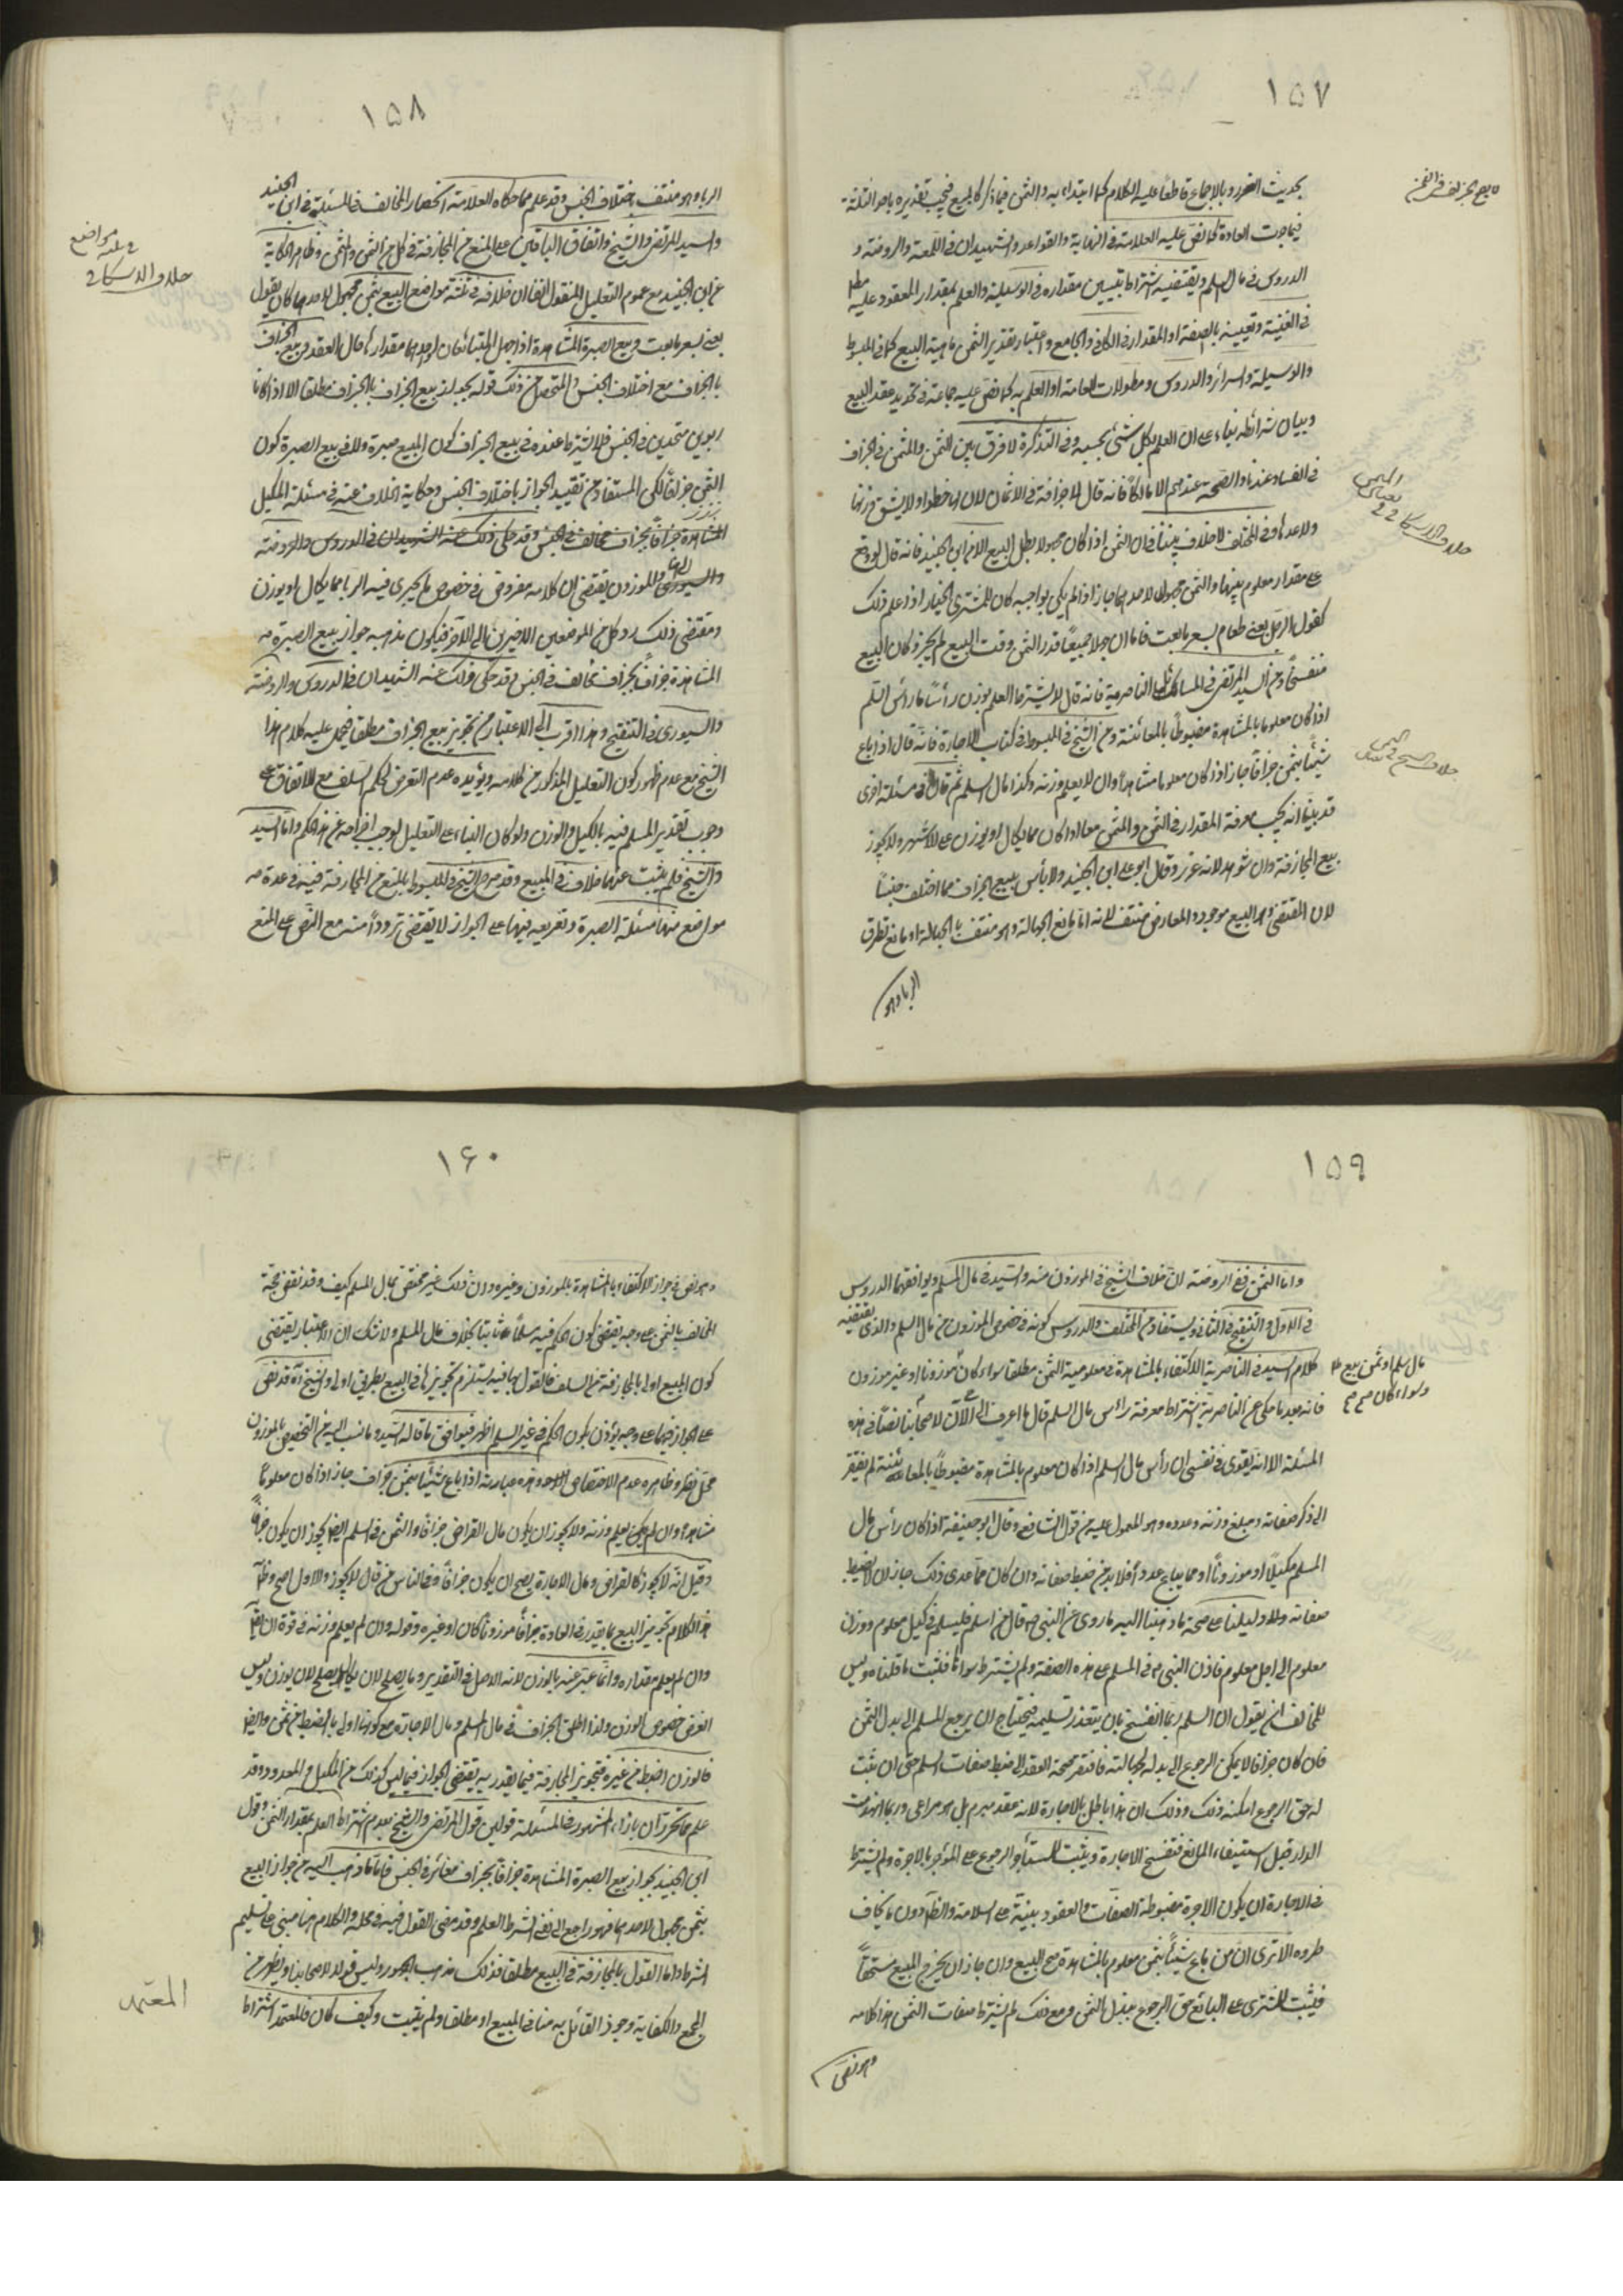 ١٥٧
بحديث الغرر وبالإجماع قاطعا عليه الكلام كما ابتداء به والثمن فيما ذكر كالمبيع فيجب تقديره باحد الثلثة
فيما جرت العادة كما نص عليه العلامة في النهاية والقواعد والشهيدان في اللمعة والروضة و
الدروس في مال السلم ويقتضيه اشتراط تبيين مقداره في الوسيلة والعلم بمقدار المعقود عليه
في الغنية وتعيينه بالصفة او المقدار في الكافي والجامع واعتبار تقدير الثمن ماهية البيع كما في المبسوط
والوسيلة والسرائر والدروس ومطولات العلامة او العلم به كما نص عليه جماعة في تحديد عقد البيع
وبيان شرائطه بناء على ان العلم بكل شئ بحسبه وفي التذكرة لا فرق بين الثمن والمثمن في الجزاف
في الفساد عندنا والصحة عندهم الا مالكا فانه قال لا جزافة في الاثمان لان لها خطرا ولا يشق وزنها
ولا عدها وفي المختلف لا خلاف بيننا في ان الثمن اذا كان مجهولا بطل البيع الا من ابن الجنيد فانه قال لو وقع
على مقدار معلوم بينهما والثمن مجهول لاحدهما جاز اذا لم يكن يواجبه كان للمشتري الخيار اذا علم ذلك
كقول الرجل بعني طعام بسعر ما بعت فاما ان جهلا جميعا قدر الثمن وقت البيع لم يجز وكان البيع
منفسخا وعن السيد المرتضى في المسائل الناصرية فانه قال لا يشترط العلم بوزن رأس مال السلم
اذا كان معلوما بالمشاهدة مضبوطا بالمعائنة وعن الشيخ في المبسوط في كتاب الاجارة فانه قال اذا باع
شيئا بثمن جزافا جاز اذا كان معلوما مشاهدا وان لا يعلم وزنه وكذا مال السلم ثم قال في مسئلة اخرى
قد بينا انه يجب معرفة المقدار في الثمن والمثمن معا اذا كان مما يكال او يوزن على الاشهر ولا يجوز
بيع المجازفة وان شوهد لانه غرر وقال ابو علي ابن الجنيد ولا بأس ببيع الجزاف مما اختلف جنسا
لان المقتضي وهو البيع موجود والمعارض منتف لانه اما مانع الجهالة وهو منتف بالجهالة او مانع تطرق
الربا وهو
١٥٨
الربا وهو منتف باختلاف الجنس وقد علم مما حكاه العلامة انحصار المخالف في المسئلة في ابن الجنيد
والسيد المرتضى والشيخ واتفاق الباقين على المنع من المجازفة في كل من الثمن والمثمن وظاهر الحكاية
عن ابن الجنيد مع عموم التعليل المنقول انما ان خلافه في ثلثة مواضع البيع بثمن مجهول لاحدهما كان يقول
بعني بسعر ما بعت وبيع الصبرة المشاهدة اذا جهل المتبائعان او احدهما مقدارها حال العقد وبيع الجزاف
بالجزاف مع اختلاف الجنس والمتحصل من ذلك قوله بجواز بيع الجزاف بالجزاف مطلقا الا اذا كانا
ربويين متحدين في الجنس فلا يشترط عنده في بيع الجزاف كون المبيع صبرة ولا في بيع الصبرة كون
الثمن جزافا لكن المستفاد من تقييد الجواز باختلاف الجنس وحكاية الخلاف عنه في مسئلة المكيل
والموزون يقتضي ان كلامه مفروض في خصوص ما يجري فيه الربا مما يكال او يوزن
ومقتضى ذلك رد كل من الموضعين الاخيرين الى الآخر فيكون مذهبه جواز بيع الصبرة
المشاهدة جزافا بجزاف مخالف في الجنس وقد حكى ذلك عنه الشهيدان في الدروس والروضة
والسيوري في التنقيح وهذا اقرب الى الاعتبار من تجويز بيع الجزاف مطلقا فيحمل عليه كلام هذا
الشيخ مع عدم ظهور كون التعليل المذكور من كلامه ويؤيده عدم التعرض لحكم السلف مع الاتفاق على
وجوب تقدير المسلم فيه بالكيل والوزن ولو كان البناء على التعليل لوجب اخراجه عن هذا الحكم واما السيد
والشيخ فلم يثبت عنهما خلاف في المبيع وقد صرح الشيخ في المبسوط بالمنع من المجازفة فيه في عدة
مواضع منها مسئلة الصبرة وتفريعه فيها على الجواز لا يقتضي ترددا منه مع النص على المنع
١٥٩
واما الثمن ففي الروضة ان خلاف الشيخ في الموزون منه والسيد في مال السلم ويوافقهما الدروس
في الاول والتنقيح في الثاني ويستفاد من المختلف والدروس كونه في خصوص الموزون من مال السلم والذي يقتضيه
كلام السيد في الناصرية الاكتفاء بالمشاهدة في معلومية الثمن مطلقا سواء كان موزونا او غير موزون
مال سلم او ثمن بيع
وسواء كان
فانه بعد ما حكى عن الناصرية اشتراط معرفة رأس مال السلم قال ما اعرف الى الآن لاصحابنا نصا في هذه
المسئلة الا انه يقوى في نفسي ان رأس مال السلم اذا كان معلوم بالمشاهدة مضبوطا بالمعائنة لم يفتقر
الى ذكر صفاته ومبلغ وزنه وعدده وهو المعمول عليه من قول الشافعي وقال ابو حنيفة اذا كان رأس مال
السلم مكيلا او موزونا او مما يباع عددا فلا بد من ضبط صفاته وان كان مما عدى ذلك جاز ان لا يضبط
صفاته ولا دليلنا على صحة ما ذهبنا اليه ما روي عن النبي ص قال من اسلم فليسلم في كيل معلوم ووزن
معلوم الى اجل معلوم فاذن النبي ص في السلم على هذه الصفة ولم يشترط سواها فثبت ما قلناه وليس
للمخالف ان يقول ان السلم ربما انفسخ بان يتعذر تسليمه فيحتاج ان يرجع المسلم الى بدل الثمن
فان كان جزافا لا يمكن الرجوع الى بدله لجهالته فافتقر صحة العقد الى ضبط صفات السلم حتى ان ثبت
له حق الرجوع امكنه ذلك وذلك ان هذا باطل بالاجارة لانه عقد مبرم بل هو مراعى وربما انهدمت
الدار قبل استيفاء المنافع فتفسخ الاجارة ويثبت للمستأجر الرجوع على المؤجر بالاجرة ولم يشترط
في الاجارة ان يكون الاجرة مضبوطة الصفات والعقود مبنية على السلامة والظاهر دون ما يخاف
طروه الا ترى ان من باع شيئا بثمن معلوم بالمشاهدة صح البيع وان جاز ان يخرج المبيع مستحقا
فيثبت للمشتري على البائع حق الرجوع ببدل الثمن ومع ذلك لم يشترط صفات الثمن هذا كلامه
وهو نص
١٦٠
وهو نص في جواز الاكتفاء بالمشاهدة بالموزون وغيره وان ذلك غير مختص بمال السلم كيف وقد نقض حجة
المخالف بالثمن على وجه يقتضي كون الحكم فيه مسلما ثابتا بخلاف مال السلم ولا شك ان الاعتبار يقتضي
كون المبيع اولى بالمجازفة من السلف فالقول بها فيه يستلزم تجويزها في البيع بطريق اولى والشيخ ره قد نص
على الجواز فيهما على وجه يؤذن بكون الحكم في غير السلم اظهر فيوافق ما قاله السيد وما نسب اليه من التخصيص بالموزون
محل نظر وظاهره عدم الاختصاص لاحد وهذه عبارته اذا باع شيئا بثمن جزاف جاز اذا كان معلوما
مشاهدا وان لم يكن يعلم وزنه ولا يجوز ان يكون مال القراض جزافا والثمن في السلم ايضا يجوز ان يكون جزافا
وقيل انه لا يجوز كالقراض ومال الاجارة يصح ان يكون جزافا وفي الناس من قال لا يجوز والاول اصح وظاهر
هذا الكلام تجويز البيع بما يقدر في العادة جزافا موزونا كان او غيره وقوله وان لم يعلم وزنه في قوة ان يقال
وان لم يعلم مقداره وانما عبر عنه بالوزن لانه الاصل في التقدير وما يصلح لان يكال يصلح لان يوزن وليس
الغرض خصوص الوزن ولذا اطلق الجزاف في مال السلم ومال الاجارة مع كونهما اولى بالضبط من ثمن وايضا
فالوزن اضبط من غيره فتجويز المجازفة فيما يقدر به يقتضي الجواز فيما ليس كذلك من المكيل والمعدود وقد
علم مما تحرر ان بازاء المشهور في المسئلة قولين قول المرتضى والشيخ بعدم اشتراط العلم بمقدار الثمن وقول
ابن الجنيد بجواز بيع الصبرة المشاهدة جزافا بجزاف مغائر في الجنس فاما ما ذهب اليه من جواز البيع
بثمن مجهول لاحدهما فهو راجع الى نفي اشتراط العلم وقد مضى القول فيه في محله والكلام هنا مبني على تسليم
اشتراطه واما القول بالمجازفة في المبيع مطلقا فذلك مذهب الجمهور وليس قولا لاصحابنا ويظهر من
المجمع والكفاية وجود القائل به منا في المبيع او مطلقا ولم يثبت وكيف كان فالمعتمد اشتراط
المعتمد